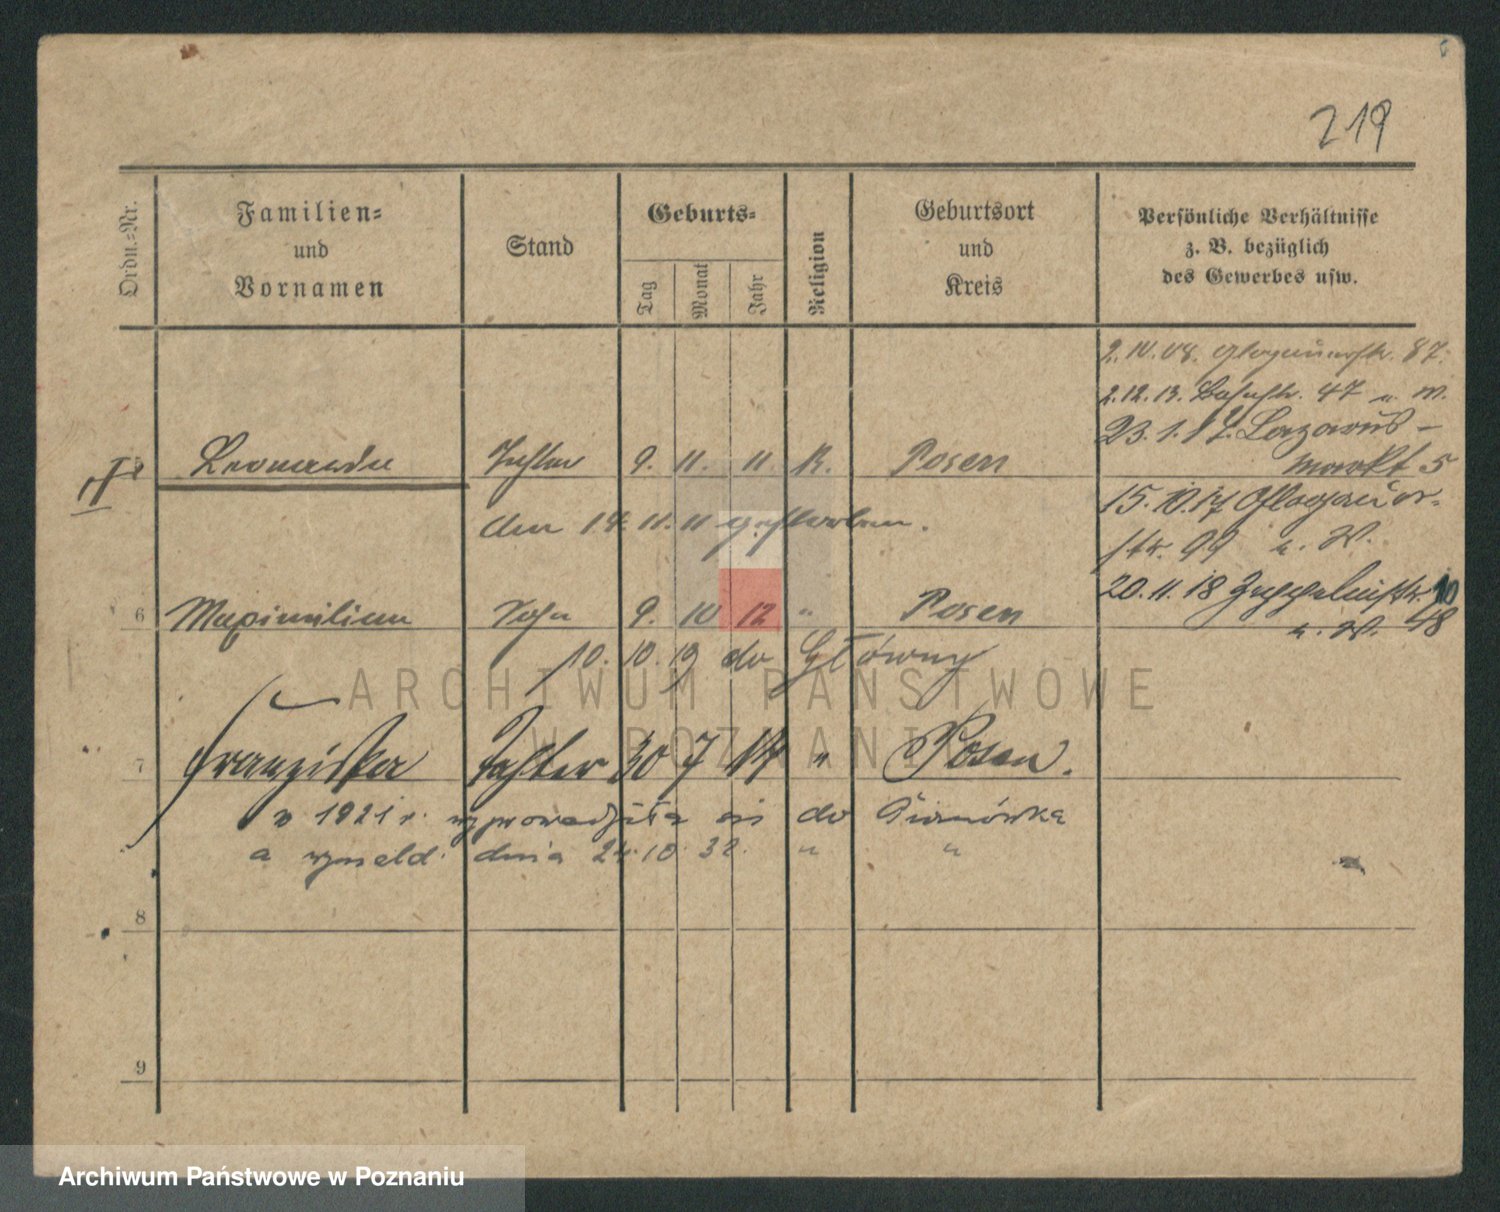 219
Ordn.-Nr.
Familien-
und
Vornamen
Stand
Geburts-
Tag
Monat
Jahr
Religion
Geburtsort
und
Kreis
Persönliche Verhältnisse
z. B. bezüglich
des Gewerbes usw.
2.10.08. Glogauerstr. 87.
2.12.13. 47 n. W.
23.1.17. Lazarus-
markt 5
15.10.17 Glogauer-
str. 99 n. W.
20.11.18
n. W. 48
Leonarda Tochter 9. 11. 11 K. Posen
den 14. 11. 11 gestorben.
6 Maximilian Sohn 9. 10 12 " Posen
10. 10. 19 do Główny
7 Franziska Tochter 30 7 14 " Posen.
w 1921 r. wyprowadziła się do
a wymeld. dnia 24.10.32. " "
8
9
ARCHIWUM PAŃSTWOWE
W POZNANIU
Archiwum Państwowe w Poznaniu